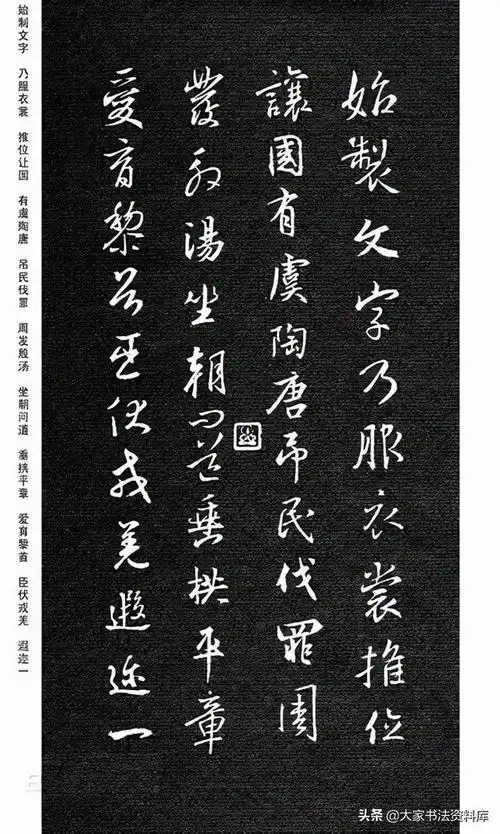 始製文字乃服衣裳推位
讓國有虞陶唐吊民伐罪周
發殷湯坐朝問道垂拱平章
愛育黎首臣伏戎羌遐迩一
始制文字 乃服衣裳 推位让国 有虞陶唐 吊民伐罪 周发殷汤 坐朝问道 垂拱平章 爱育黎首 臣伏戎羌 遐迩一
头条 @大家书法资料库